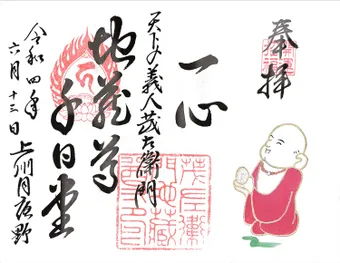 奉拝
一心
天下の義人茂左衛門
地蔵尊
千日堂
令和四年
六月十三日
上州月夜野
茂左衛
門地蔵